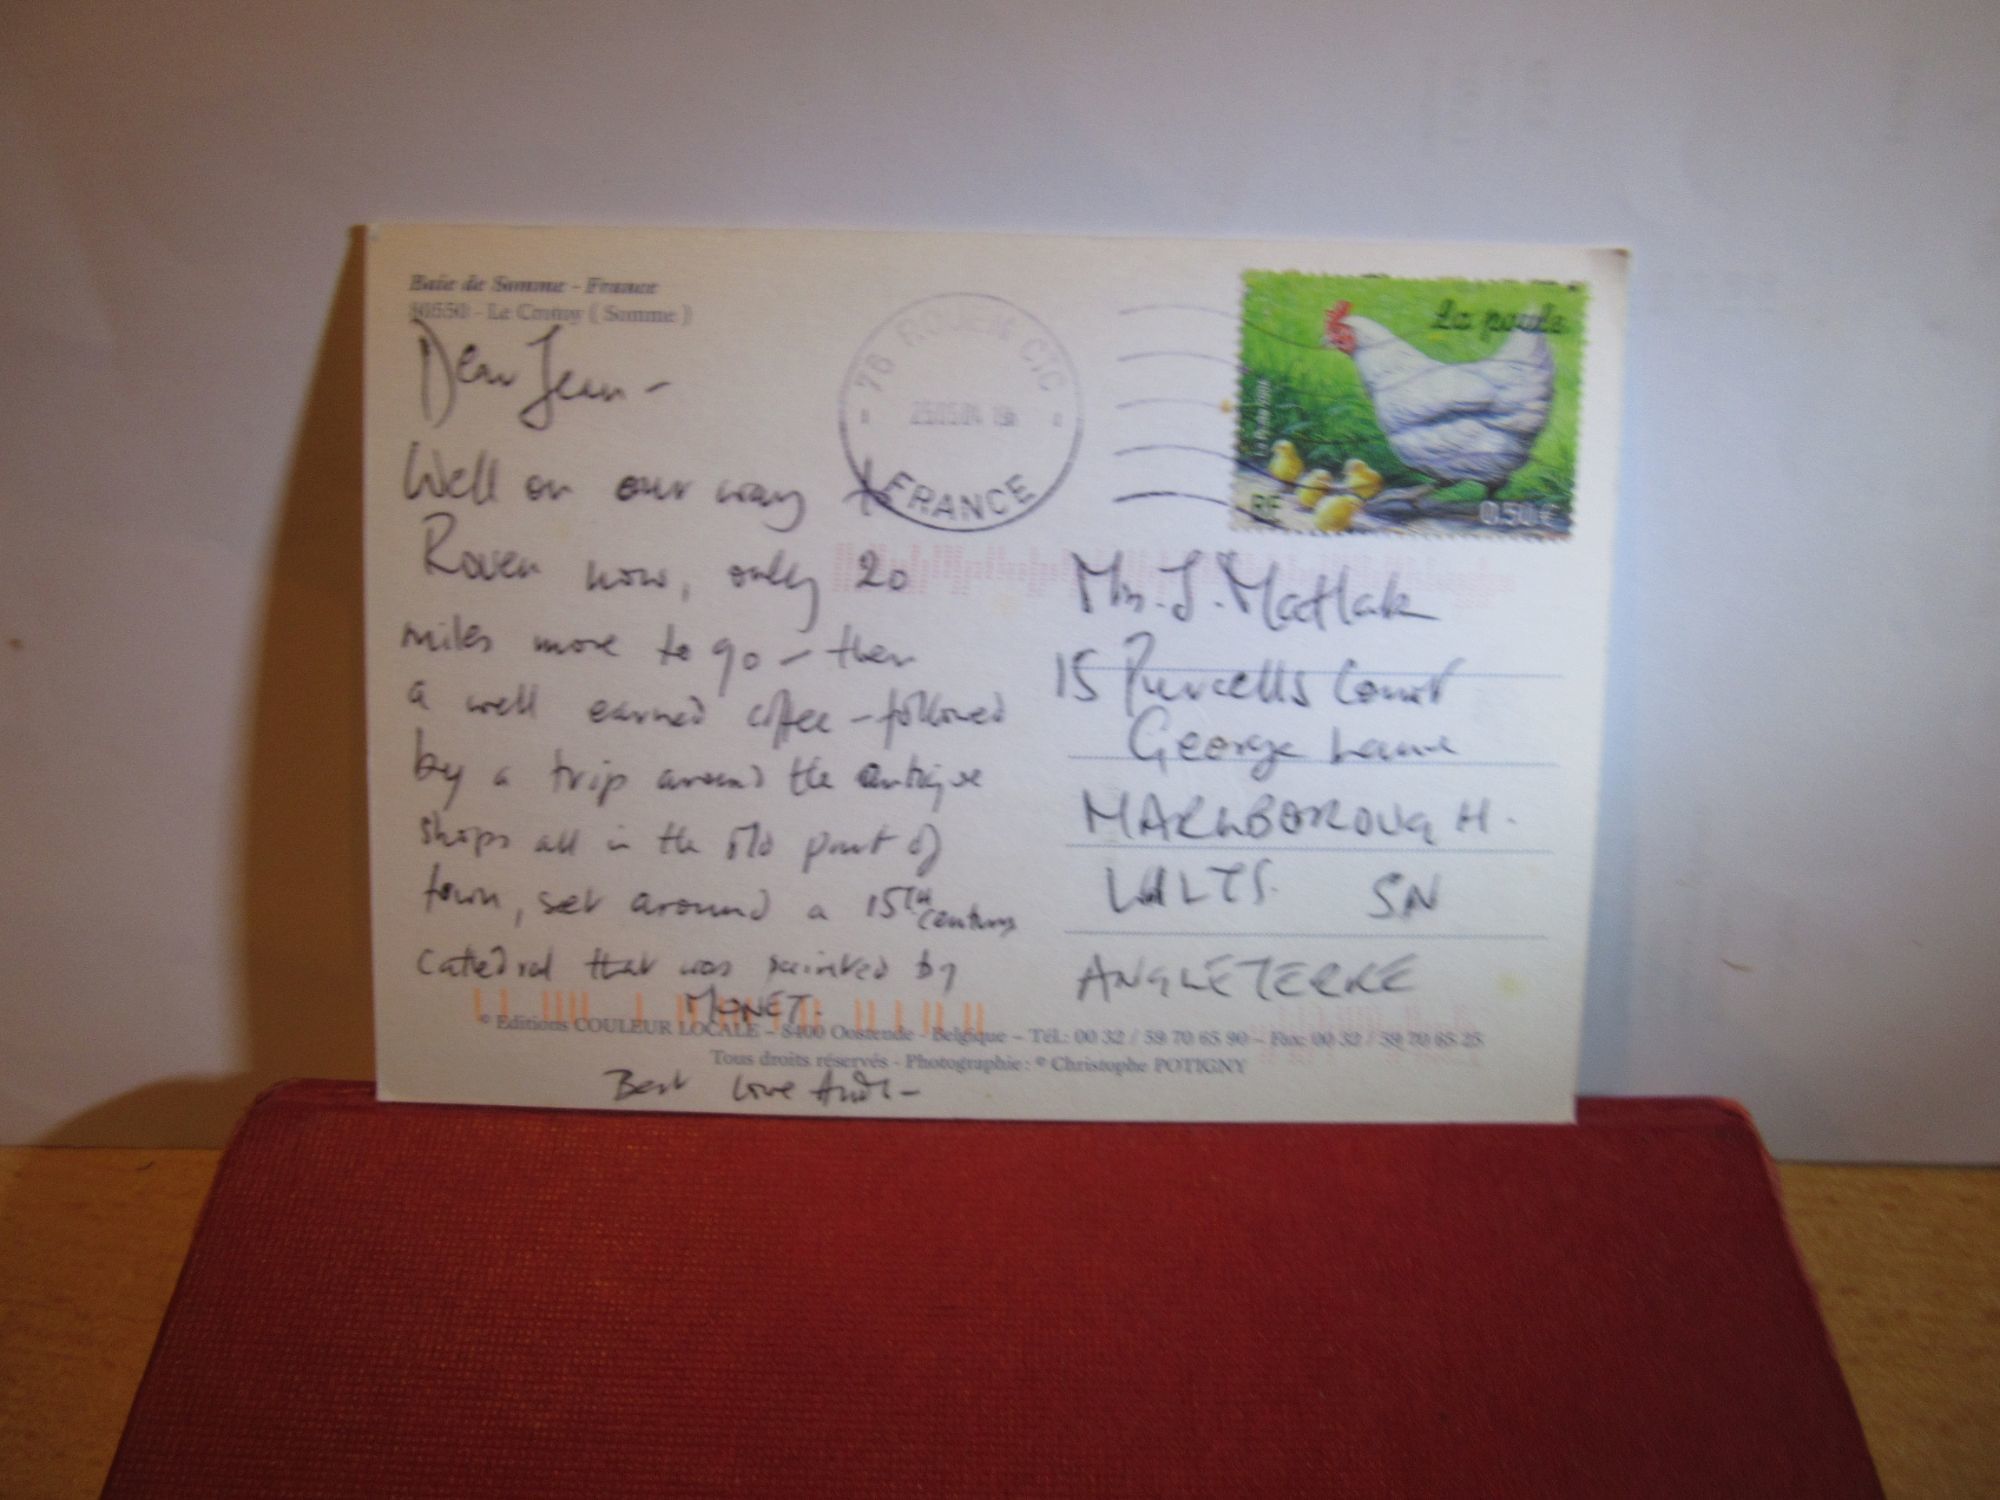 Baie de Somme - France
80550 - Le Crotoy ( Somme )
76 ROUEN CTC
FRANCE
La poule
RF
0,50 €
Dear Jean -
Well on our way to
Rouen now, only 20
miles more to go - then
a well earned coffee - followed
by a trip around the antique
shops all in the old part of
town, set around a 15TH century
catedral that was painted by
MONET.
Best Love Andi -
Mrs. J. Matlak
15 Purcells Court
George Lane
MARLBOROUGH.
WILTS. SN
ANGLETERRE
© Editions COULEUR LOCALE – 8400 Oostende - Belgique – Tél.: 00 32 / 59 70 65 90 – Fax: 00 32 / 59 70 65 25
Tous droits réservés - Photographie : © Christophe POTIGNY